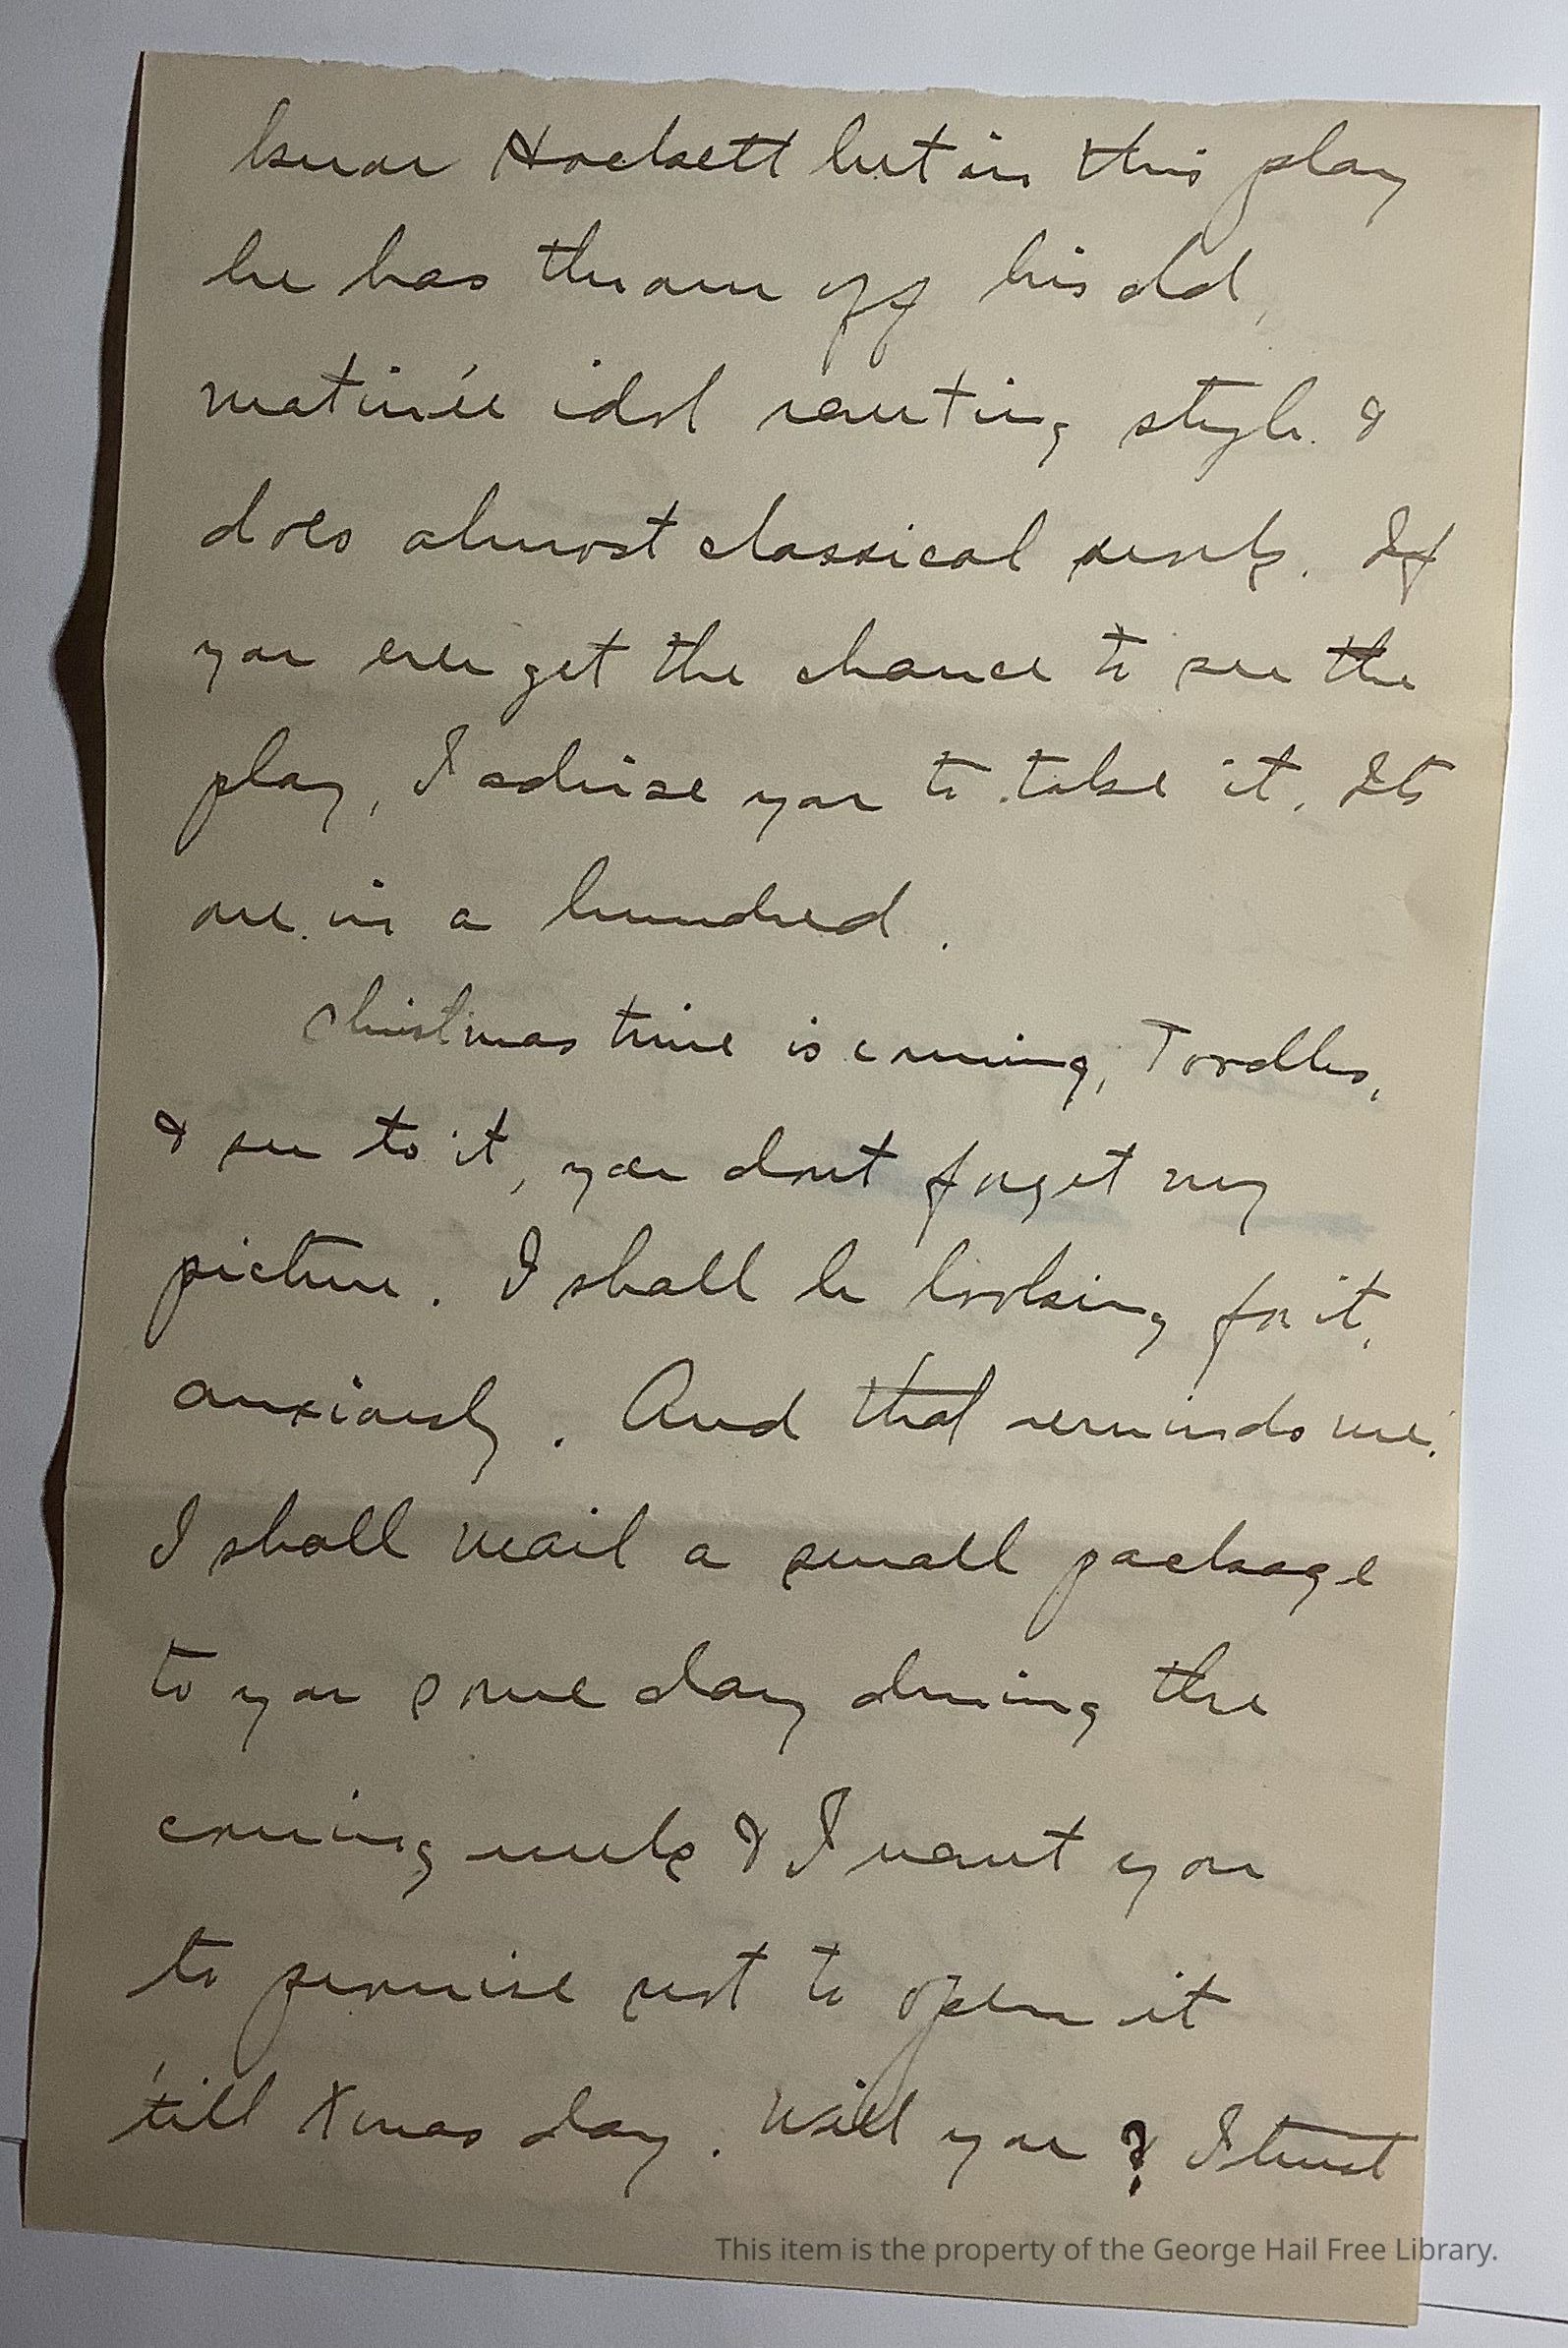 know Hackett but in this play
he has thrown off his old,
matinée idol ranting style. &
does almost classical work. If
you ever get the chance to see the
play, I advise you to take it. Its
one in a hundred.
Christmas time is coming, Toodles,
& see to it, you dont forget my
picture. I shall be looking for it,
anxiously. And that reminds me.
I shall mail a small package
to you some day during the
coming week & I want you
to promise not to open it
'till Xmas day. Will you? I trust
This item is the property of the George Hail Free Library.